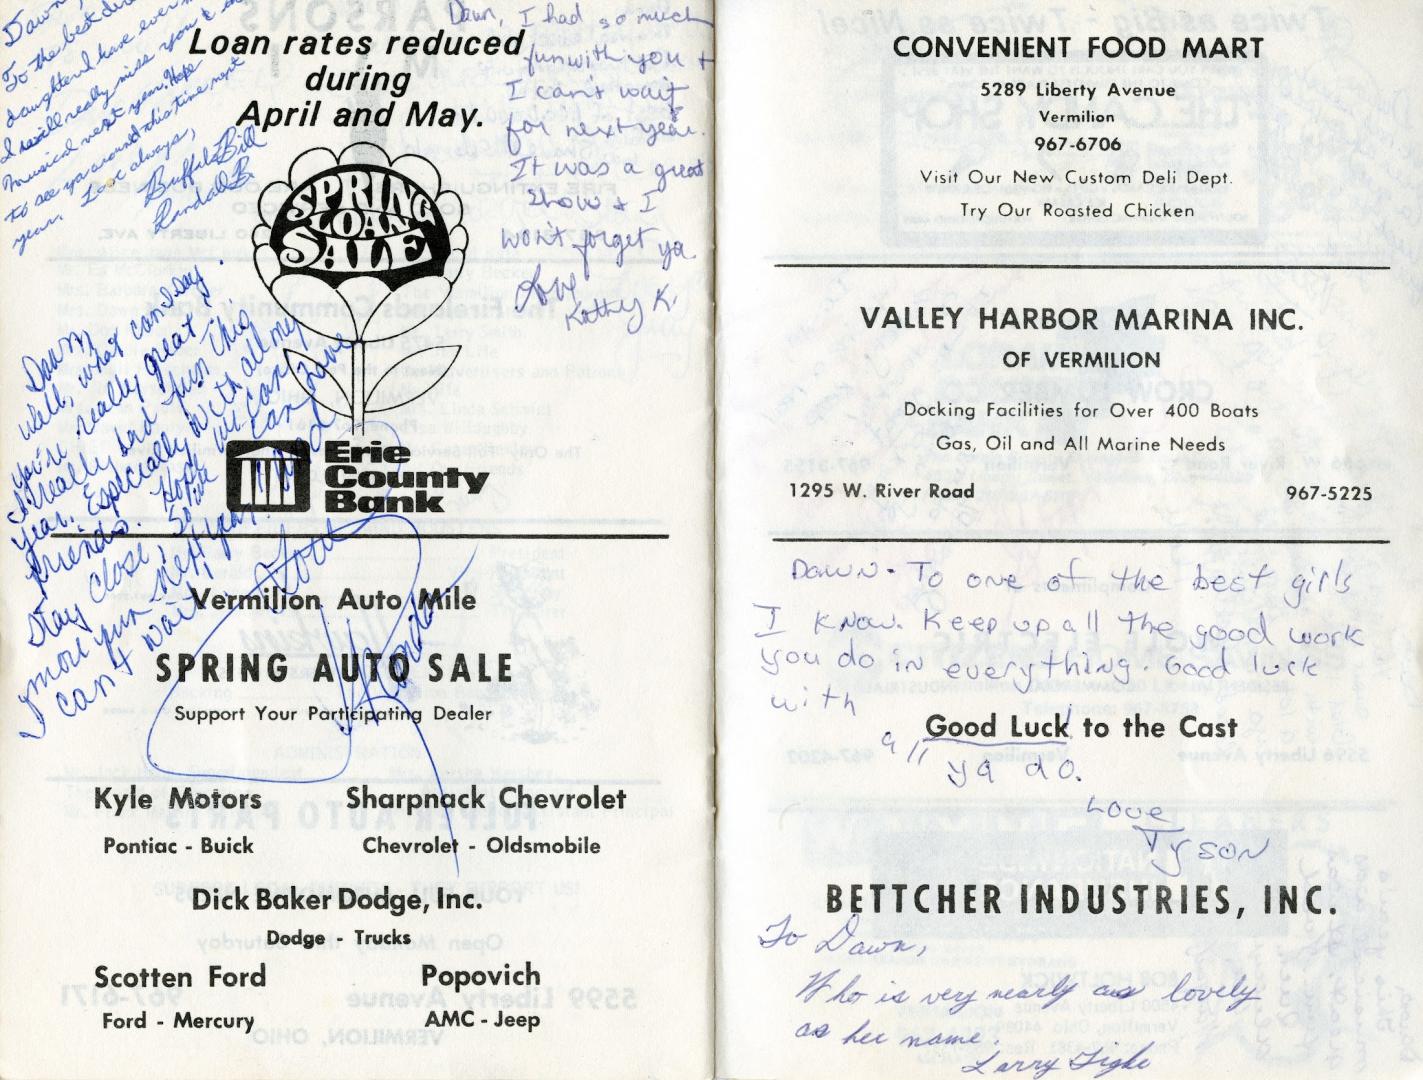 Dawn,
To the best
daughter I have ever
I will really miss you &
musical next year. Hope
to see ya around this time next
year. Love always,
Buffalo Bill
Randall B.
Dawn, I had so much
fun with you +
I can't wait
for next year.
It was a great
show & I
won't forget ya
Love
Kathy K.
Loan rates reduced
during
April and May.
SPRING
LOAN
SALE
Dawn,
Well, what can I say.
you're really great.
I really had fun this
year. Especially with all my
friends. Hope we can
stay close, so we can have
more fun next year.
I can't wait!
Love
Erie
County
Bank
Vermilion Auto Mile
SPRING AUTO SALE
Support Your Participating Dealer
Kyle Motors Sharpnack Chevrolet
Pontiac - Buick Chevrolet - Oldsmobile
Dick Baker Dodge, Inc.
Dodge - Trucks
Scotten Ford Popovich
Ford - Mercury AMC - Jeep
CONVENIENT FOOD MART
5289 Liberty Avenue
Vermilion
967-6706
Visit Our New Custom Deli Dept.
Try Our Roasted Chicken
VALLEY HARBOR MARINA INC.
OF VERMILION
Docking Facilities for Over 400 Boats
Gas, Oil and All Marine Needs
1295 W. River Road 967-5225
Dawn - To one of the best girls
I know. Keep up all the good work
you do in everything. Good luck
with
Good Luck to the Cast
all
ya do.
Love
Tyson
BETTCHER INDUSTRIES, INC.
To Dawn,
Who is very nearly as lovely
as her name.
Larry